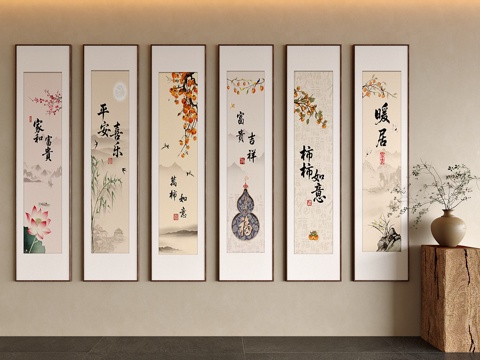 家和
富貴
平安
喜乐
萬柿
如意
富貴
吉祥
福
柿柿
如意
暖居